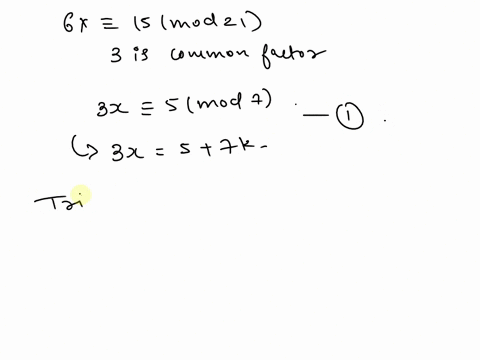 6x ≡ 15 (mod 21)
3 is common factor
3x ≡ 5 (mod 7) . — ① .
↳ 3x = 5 + 7k -
Tri